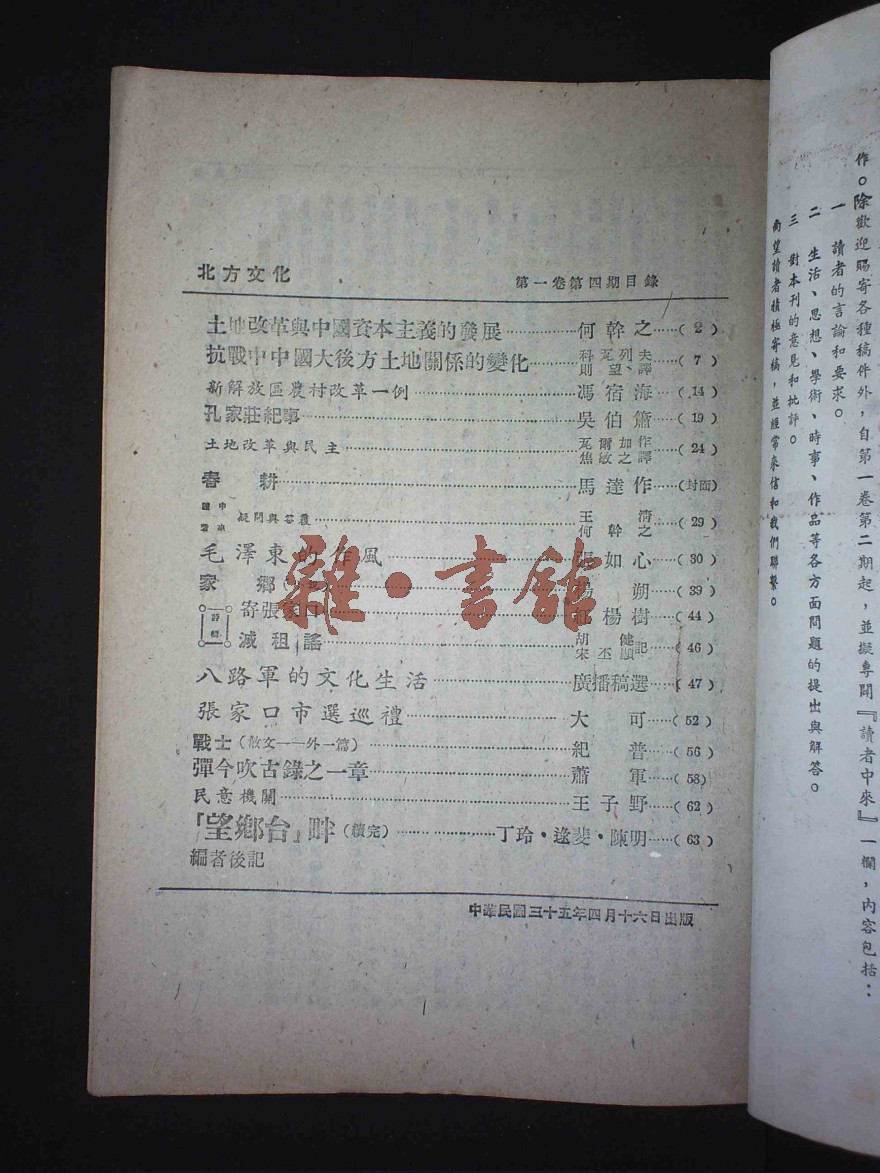 北方文化
第一卷第四期目錄
土地改革與中國資本主義的發展……何幹之…(2)
抗戰中中國大後方土地關係的變化……科瓦列夫 則望譯…(7)
新解放區農村改革一例……馮宿海…(14)
孔家莊紀事……吳伯簫…(19)
土地改革與民主……瓦爾加作 焦敏之譯…(24)
春耕……馬達作…(封面)
讀者中來 疑問與答覆……王清 何幹之…(29)
毛澤東的作風……張如心…(30)
家鄉……楊朔…(39)
詩輯 寄張家口……紅楊樹…(44)
減租謠……胡健 宋丕 記…(46)
八路軍的文化生活……廣播稿選…(47)
張家口市選巡禮……大可…(52)
戰士(散文——外一篇)……紀普…(56)
彈今吹古錄之一章……蕭軍…(58)
民意機關……王子野…(62)
『望鄉台』畔(續完)……丁玲·逯斐·陳明…(63)
編者後記
中華民國三十五年四月十六日出版
雜·書館
作。除歡迎賜寄各種稿件外,自第一卷第二期起,並擬專闢『讀者中來』一欄,內容包括:
一 讀者的言論和要求。
二 生活、思想、學術、時事、作品等各方面問題的提出與解答。
三 對本刊的意見和批評。
尚望讀者積極寄稿,並經常來信和我們聯繫。